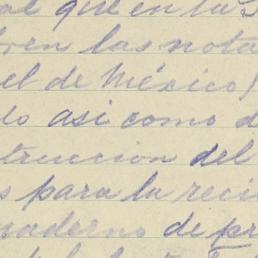 al que en la
ren las nota
el de México
lo asi como d
truccion del
s para la reci
uaderno de pr